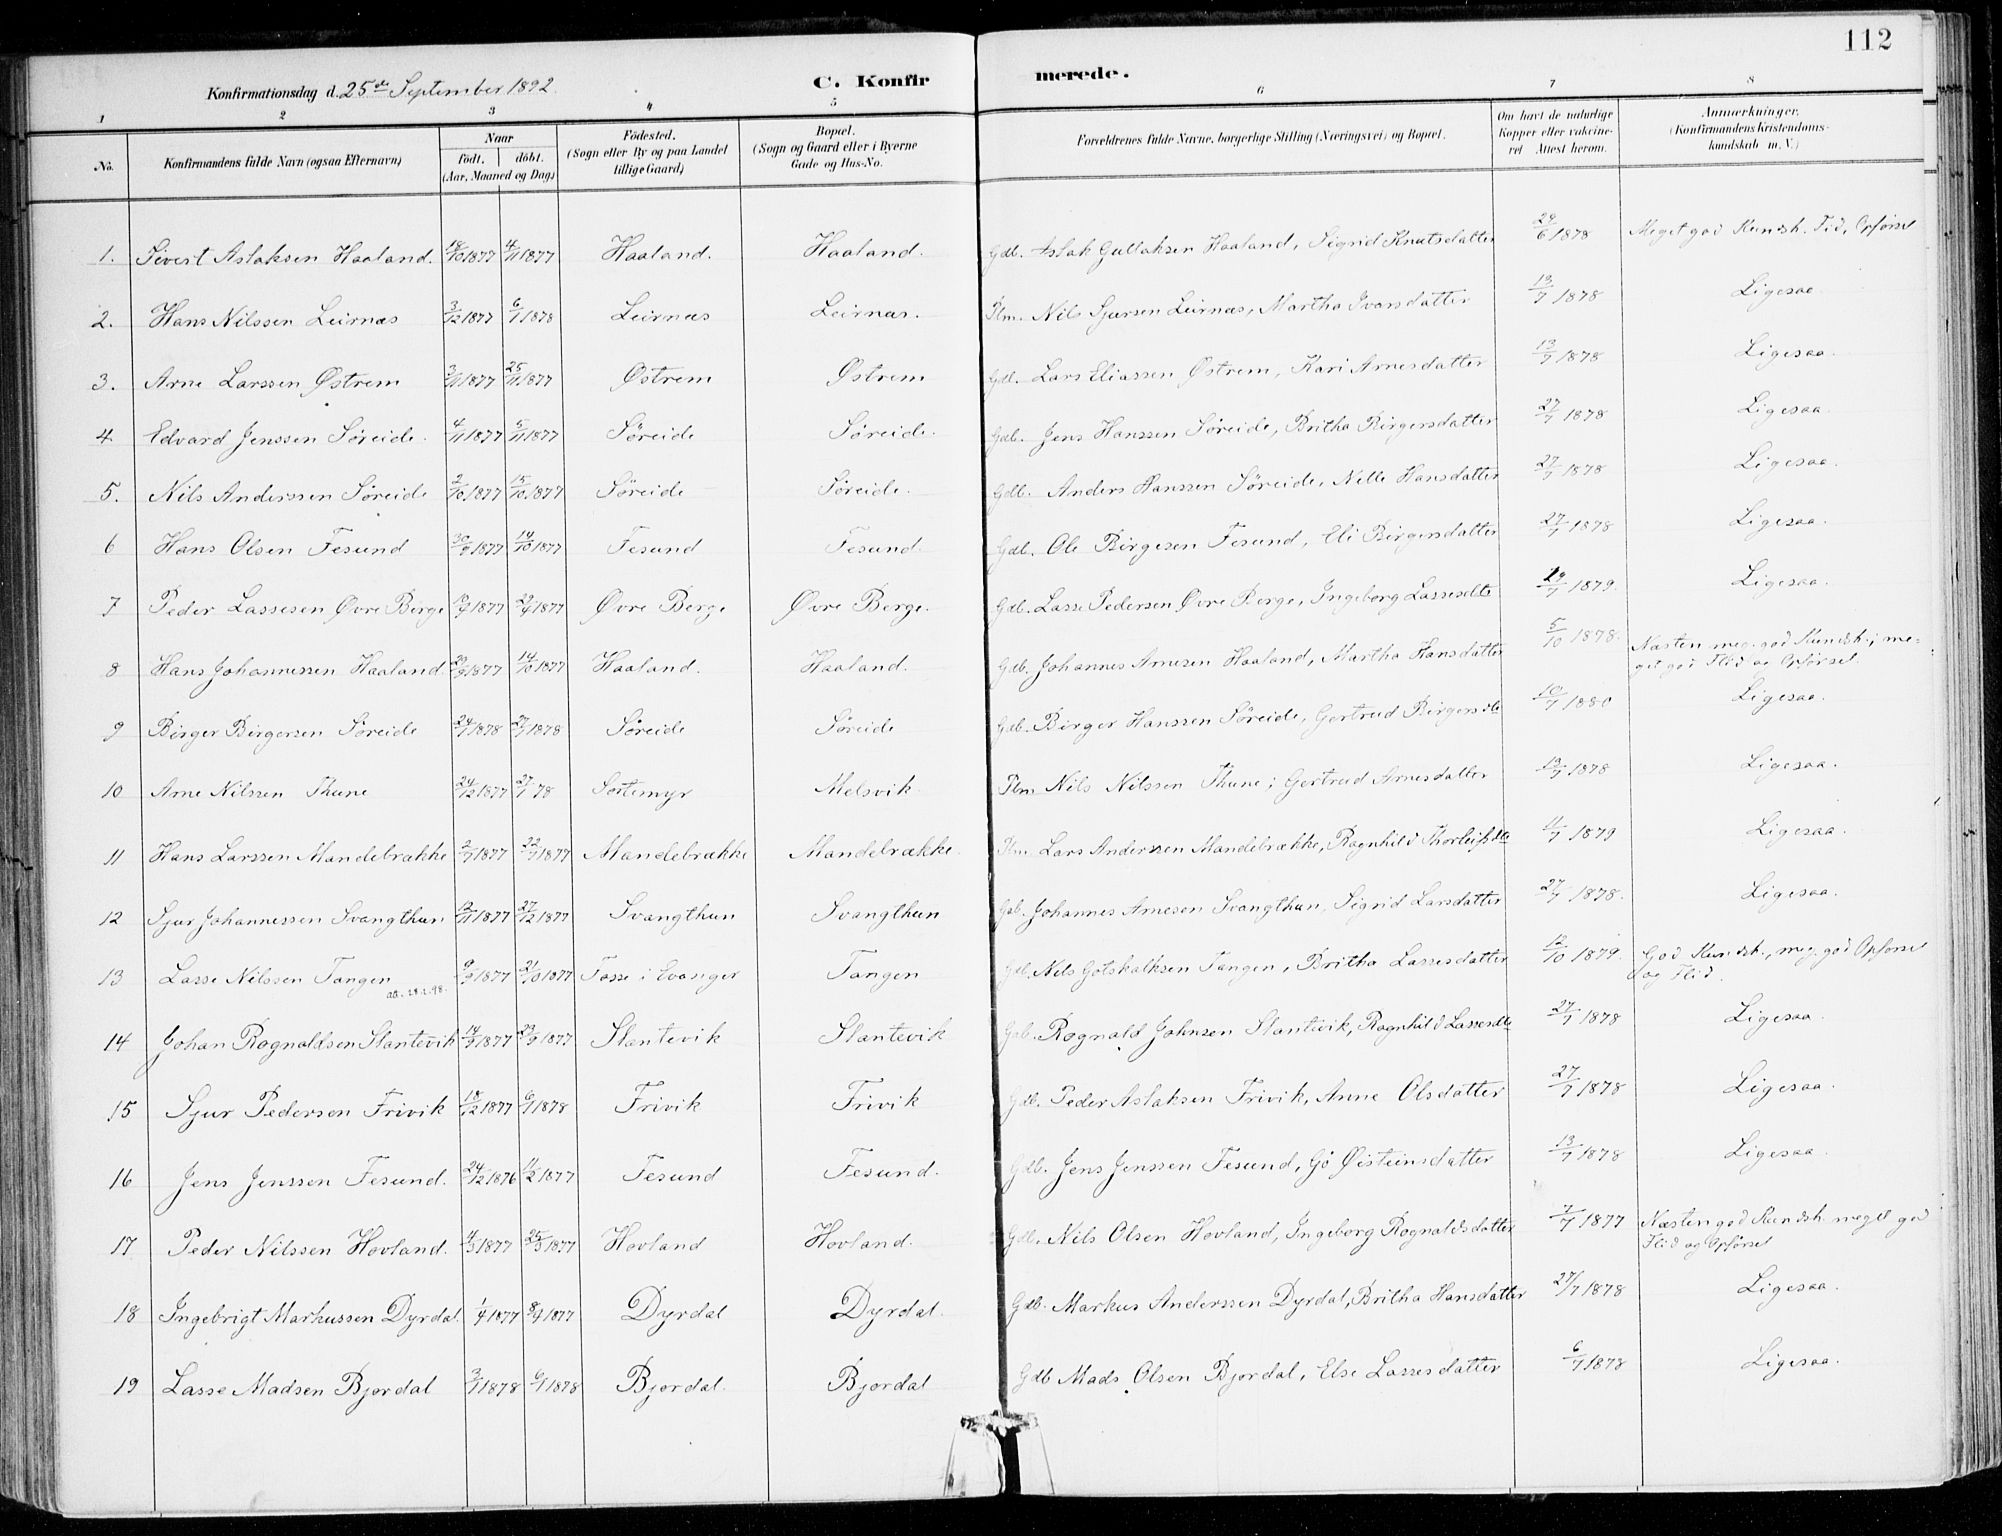 112
Konfirmationsdag d. 25de September 1892.
C. Konfirmerede.
1 2 3 4 5 6 7 8
No. Konfirmandens fulde Navn (ogsaa Efternavn) Naar født. døbt. (Aar, Maaned og Dag) Fødested. (Sogn eller By og paa Landet tillige Gaard) Bopæl. (Sogn og Gaard eller i Byerne Gade og Hus-No. Forældrenes fulde Navne, borgerlige Stilling (Næringsvei) og Bopæl. Om havt de naturlige Kopper eller vakcineret Attest herom. Anmærkninger. (Konfirmandens Kristendomskundskab m. V.)
1. Sivert Aslaksen Haaland. 18/10 1877 4/11 1877 Haaland. Haaland. Gdb. Aslak Gullaksen Haaland, Sigrid Knutsdatter 29/6 1878 Meget god Kundsk. Flid, Opførsel
2. Hans Nilssen Leirnæs 3/12 1877 6/1 1878 Leirnæs Leirnæs. Plm. Nils Sjursen Leirnæs, Martha Ivarsdatter 13/7 1878 Ligesaa
3. Arne Larssen Østrem 3/11 1877 25/11 1877 Østrem Østrem Gdb. Lars Eliassen Østrem, Kari Arnesdatter 13/7 1878 Ligesaa.
4. Edvard Jenssen Søreide. 4/11 1877 5/11 1877 Søreide Søreide. Gdb. Jens Hanssen Søreide, Britha Birgersdatter 27/7 1878 Ligesaa.
5. Nils Anderssen Søreide 2/10 1877 15/10 1877 Søreide Søreide. Gdb. Anders Hanssen Søreide, Nille Hansdatter 27/7 1878 Ligesaa.
6 Hans Olsen Fesund 30/9 1877 14/10 1877 Fesund Fesund. Gdb. Ole Birgesen Fesund, Eli Birgersdatter 27/7 1878 Ligesaa.
7 Peder Lassesen Øvre Berge 1877 29/9 1877 Øvre Berge Øvre Berge. Gdb. Lasse Pedersen Øvre Berge, Ingeborg Lassesdtr 1879. Ligesaa.
8 Hans Johannessen Haaland. 1877 14/10 1877 Haaland. Haaland. Gdb. Johannes Arnesen Haaland, Martha Hansdatter 5/10 1878. Næsten meg. god Kundsk.; meget god Flid og Opførsel.
9 Birger Birgersen Søreide 24/7 1878 27/7 1878 Søreide Søreide Gdb. Birger Hanssen Søreide, Gertrud Birgersdtr 10/7 1880 Ligesaa.
10 Arne Nilssen Thune 24/12 1877 27/1 78 Sortemyr Melsvik. Plm. Nils Nilssen Thune; Gertrud Arnesdatter 13/7 1878 Ligesaa.
11 Hans Larssen Mandebrække 2/7 1877 22/7 1877 Mandebrække Mandebrække. Plm. Lars Anderssen Mandebrække, Ragnhild Thorleifsdtr 11/7 1879 Ligesaa.
12 Sjur Johannessen Svangthun 1877 27/12 1877 Svangthun Svangthun Gdb. Johannes Arnesen Svangthun, Sigrid Larsdatter 27/7 1878. Ligesaa.
13 Lasse Nilssen Tangen 9/9 1877 21/10 1877 Fosse i Evanger Tangen Gdb. Nils Gotskalksen Tangen, Britha Lassesdatter 12/10 1879. God Kundsk., meg. god Opførsel og Flid.
att. 28.1.98.
14 Johan Rognaldsen Slantevik 14/9 1877 23/9 1877 Slantevik Slantevik Gdb. Rognald Johnsen Slantevik, Ragnhild Lassesdtr 27/7 1878 Ligesaa.
15 Sjur Pedersen Frivik 18/12 1877 6/1 1878 Frivik Frivik Gdb. Peder Aslaksen Frivik, Anne Olsdatter 27/7 1878 Ligesaa.
16 Jens Jenssen Fesund. 24/12 1876 11/2 1877 Fesund Fesund. Gdb. Jens Jenssen Fesund, Gjø Øisteinsdatter 13/7 1878 Ligesaa.
17 Peder Nilssen Hovland. 4/3 1877 25/3 1877 Hovland Hovland. Gdb. Nils Olsen Hovland, Ingeborg Rognaldsdatter 7/7 1877 Næsten god Kundsk. meget god Flid og Opførsel
18 Ingebrigt Markussen Dyrdal. 1/4 1877 8/4 1877 Dyrdal Dyrdal. Gdb. Markus Anderssen Dyrdal, Britha Hansdatter 27/7 1878 Ligesaa.
19 Lasse Madsen Bjordal 3/1 1878 6/1 1878 Bjordal. Bjordal Gdb Mads Olsen Bjordal, Else Lassesdatter 6/7 1878 Ligesaa.